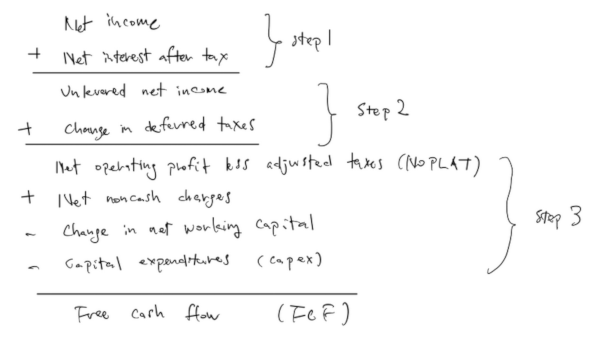 Net income
+ Net interest after tax
} step 1
Unlevered net income
+ Change in deferred taxes
} Step 2
Net operating profit less adjusted taxes (NOPLAT)
+ Net noncash charges
- Change in net working capital
- Capital expenditures (capex)
} Step 3
Free cash flow (FCF)